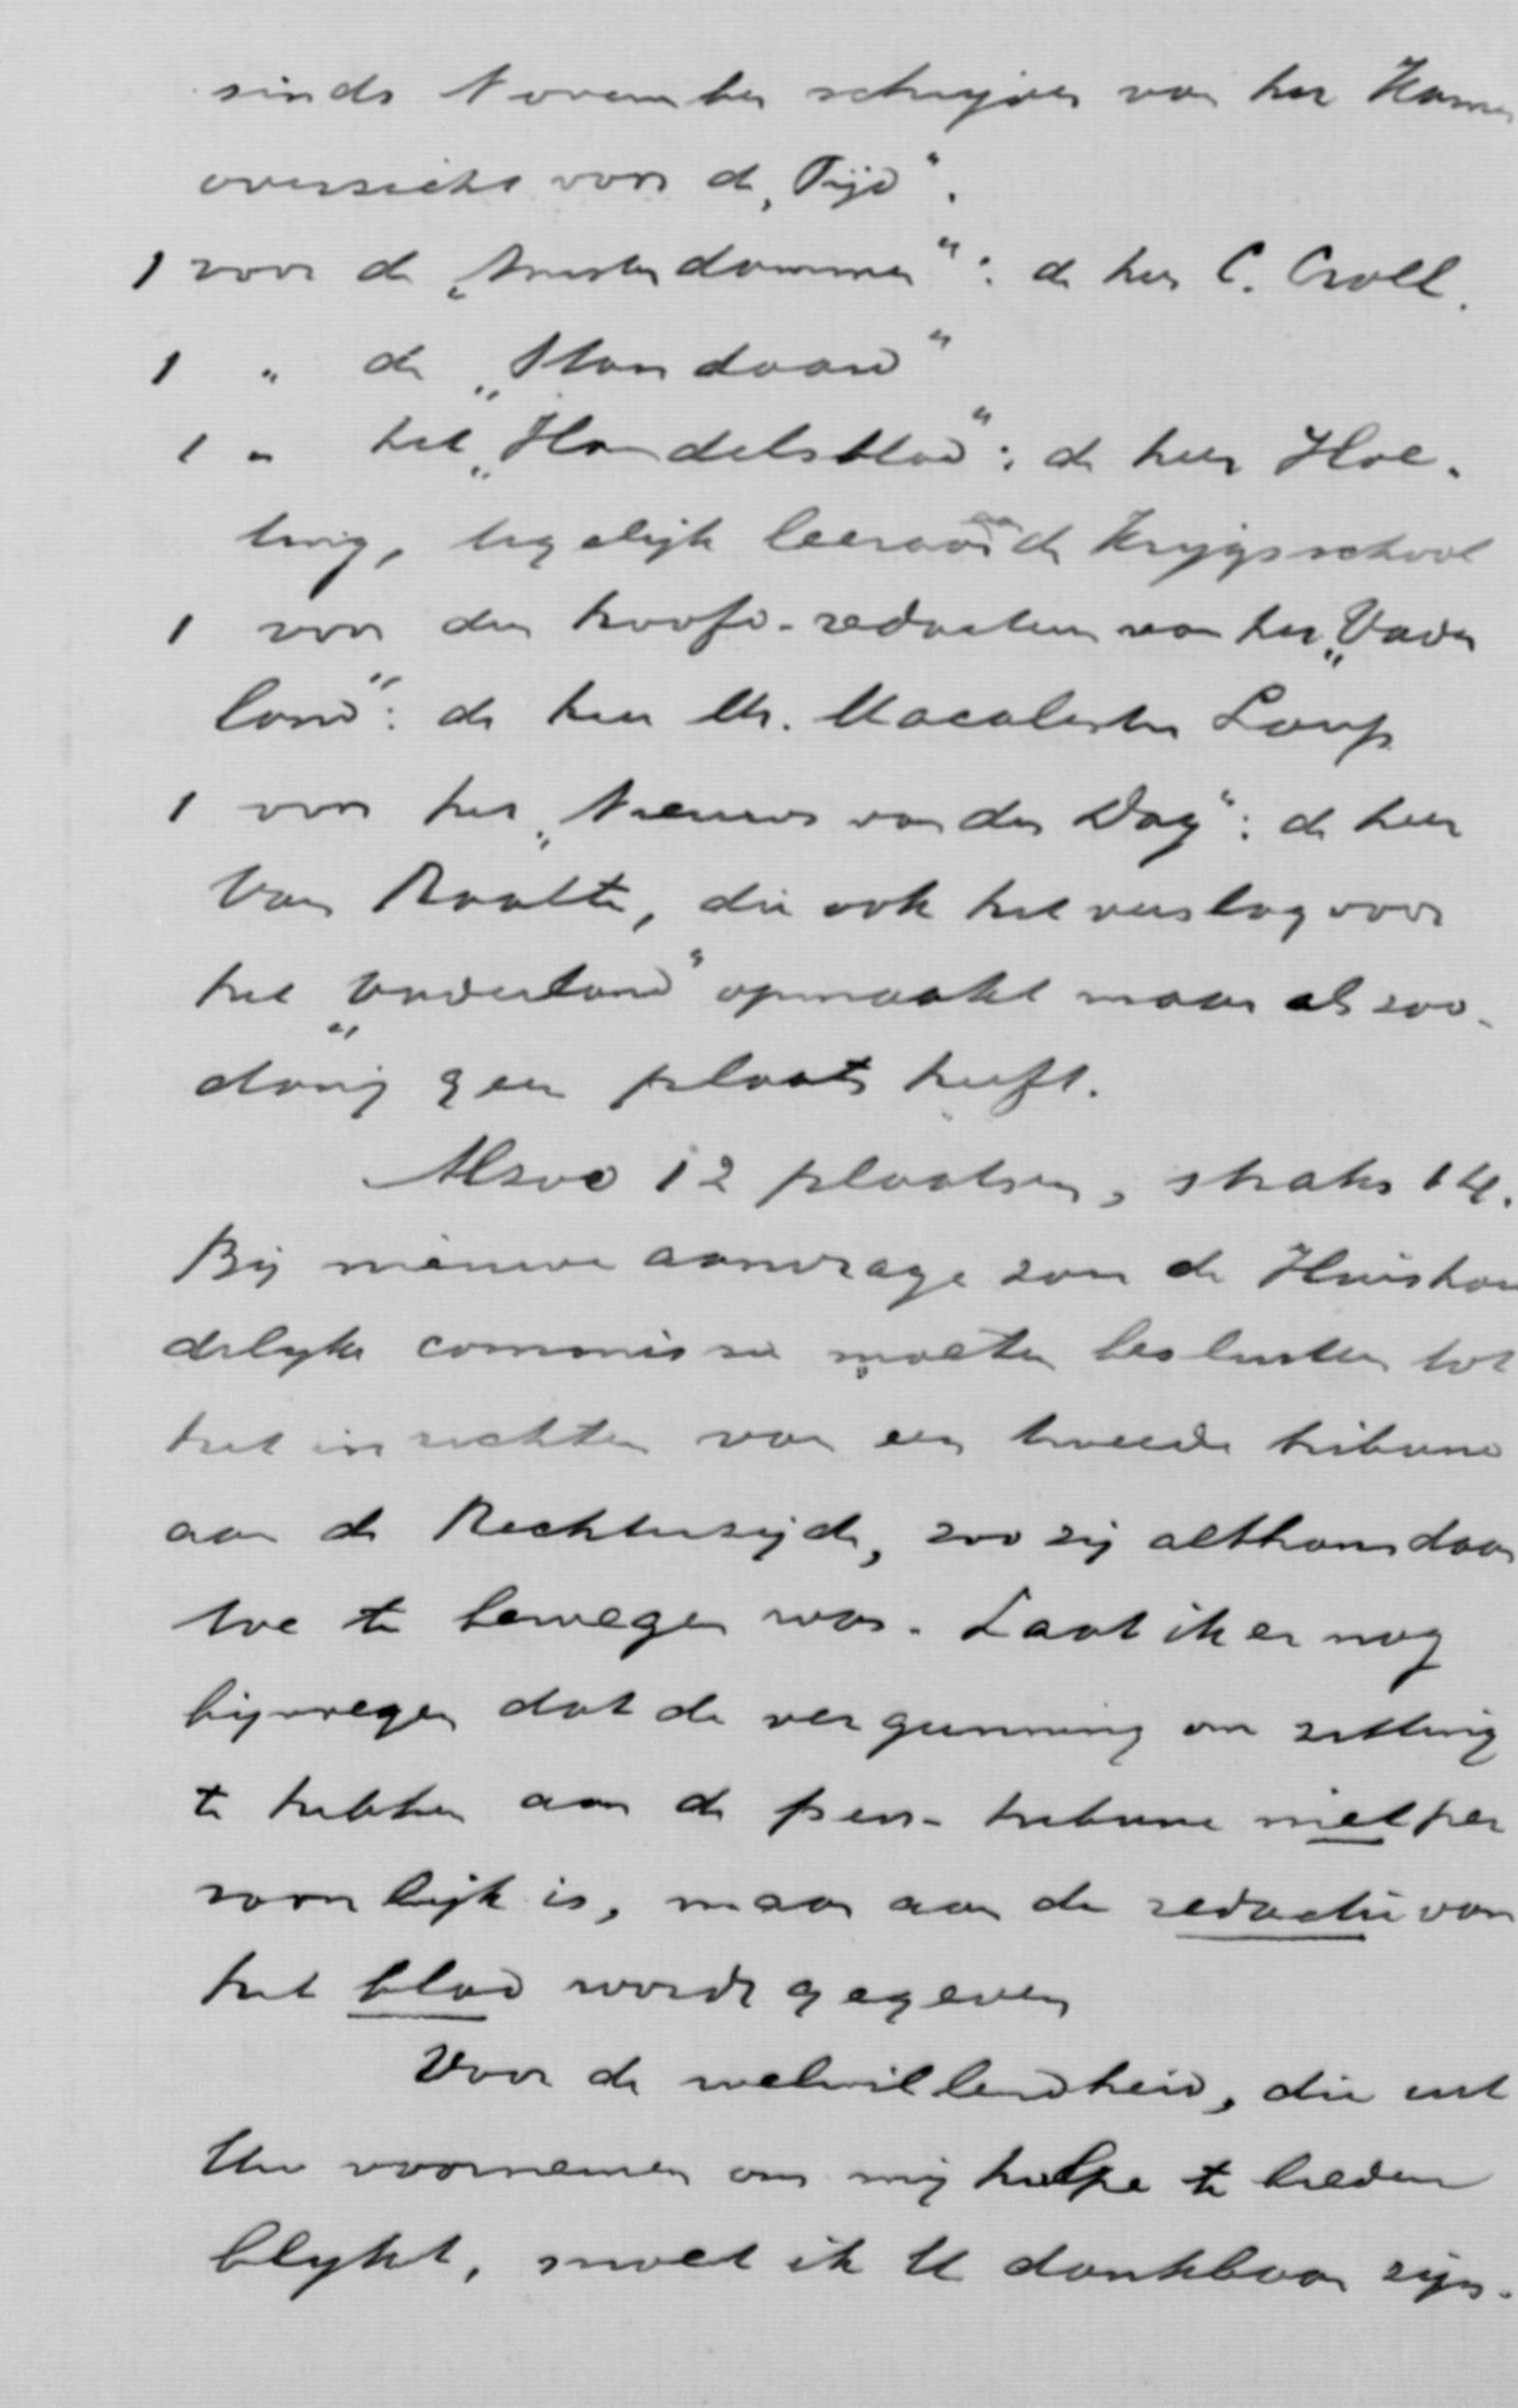 sinds November schrijver van het Kamer
overzicht voor de „Tijd".
1 voor de „Amsterdammer": de heer C. Croll.
1 " de „Standaard"
1 " het „Handelsblad": de heer Hoe-
ting, tegelijk leeraar aan de Krijgsschool
1 voor den hoofd-redacteur van het „Vader
land": de heer Mr. Macalester Loup
1 voor het „Nieuws van den Dag": de heer
Van Raalte, die ook het verslag voor
het „Vaderland" opmaakt maar als zoo-
danig geen plaats heeft.
Alzoo 12 plaatsen, straks 14.
Bij nieuwe aanvrage zou de Huishou
delyke commissie moeten besluiten tot
het inrichten van een tweede tribune
aan de Rechterzijde, zoo zij althans daar
toe te bewegen was. Laat ik er nog
bijvoegen dat de vergunning om zitting
te hebben aan de pers-tribune niet per
soonlijk is, maar aan de redactie van
het blad wordt gegeven
Voor de welwillendheid, die uit
Uw voornemen om mij hulpe te bieden
blykt, moet ik U dankbaar zijn.